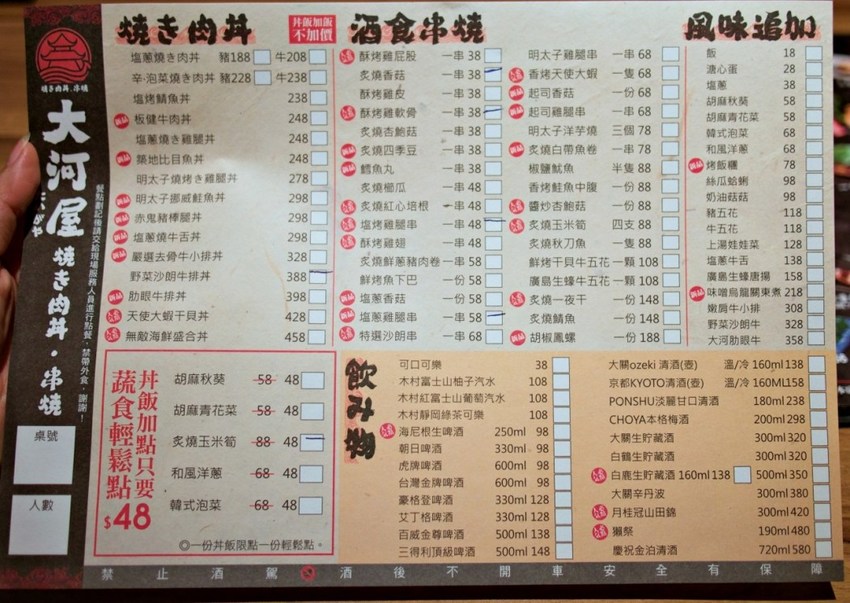 燒き肉丼
丼飯加飯
不加價
塩蔥燒き肉丼 豬188 牛208
辛·泡菜燒き肉丼 豬228 牛238
塩烤鯖魚丼 238
板健牛肉丼 248
塩蔥燒き雞腿丼 248
築地比目魚丼 248
明太子燒烤き雞腿丼 278
明太子挪威鮭魚丼 298
赤鬼豬棒腿丼 298
塩蔥燒牛舌丼 298
嚴選去骨牛小排丼 328
野菜沙朗牛排丼 388
肋眼牛排丼 398
天使大蝦干貝丼 428
無敵海鮮盛合丼 458
酒食串燒
酥烤雞屁股 一串 38
炙燒香菇 一串 38
酥烤雞皮 一串 38
酥烤雞軟骨 一串 38
炙燒杏鮑菇 一串 38
炙燒四季豆 一串 38
鱈魚丸 一串 38
炙燒櫛瓜 一串 48
炙燒紅心培根 一串 48
塩烤雞腿串 一串 48
酥烤雞翅 一串 48
炙燒蔥鮮蔬豬肉卷 一串 58
鮮烤魚下巴 一份 58
塩蔥香菇 一份 58
塩蔥雞腿串 一串 58
特選沙朗串 一串 68
明太子雞腿串 一串 68
香烤天使大蝦 一隻 68
起司香菇 一份 68
起司雞腿串 一串 68
明太子洋芋燒 三個 78
炙燒白帶魚卷 一串 78
椒鹽魷魚 半隻 88
香烤鮭魚中腹 一份 88
醬炒杏鮑菇 一份 88
炙燒玉米筍 四支 88
炙燒秋刀魚 一隻 88
鮮烤干貝牛五花 一顆 108
廣島生蠔牛五花 一顆 108
炙燒一夜干 一份 148
炙燒鯖魚 一份 148
胡椒鳳螺 一份 188
風味追加
飯 18
溏心蛋 28
塩蔥 38
胡麻秋葵 58
胡麻青花菜 58
韓式泡菜 68
和風洋蔥 68
烤飯糰 78
絲瓜蛤蜊 98
奶油菇菇 98
豬五花 118
牛五花 118
上湯娃娃菜 128
塩蔥牛舌 138
廣島生蠔唐揚 158
味噌烏龍關東煮 218
嫩肩牛小排 308
野菜沙朗牛 328
大河屋肋眼牛 358
燒き肉丼.串燒
大河屋
たいがや
燒き肉丼·串燒
餐點劃記後請交給現場服務人員進行點餐，禁帶外食，謝謝！
桌號
人數
丼飯加點只要
蔬食輕鬆點
$48
胡麻秋葵 58 48
胡麻青花菜 58 48
炙燒玉米筍 88 48
和風洋蔥 68 48
韓式泡菜 68 48
◎一份丼飯限點一份輕鬆點。
飲み物
可口可樂 38
木村富士山柚子汽水 108
木村紅富士山葡萄汽水 108
木村靜岡綠茶可樂 108
海尼根生啤酒 250ml 98
朝日啤酒 330ml 98
虎牌啤酒 600ml 98
台灣金牌啤酒 600ml 98
豪格登啤酒 330ml 128
艾丁格啤酒 330ml 128
百威金尊啤酒 500ml 138
三得利頂級啤酒 500ml 148
大關ozeki 清酒(壺) 溫/冷 160ml 138
京都KYOTO清酒(壺) 溫/冷 160ML 158
PONSHU淡麗甘口清酒 180ml 238
CHOYA本格梅酒 200ml 298
大關生貯藏酒 300ml 320
白鶴生貯藏酒 300ml 320
白鹿生貯藏酒 160ml 138 500ml 350
大關辛丹波 300ml 380
月桂冠山田錦 300ml 420
獺祭 190ml 480
慶祝金泊清酒 720ml 580
禁止酒駕 酒後不開車安全有保障